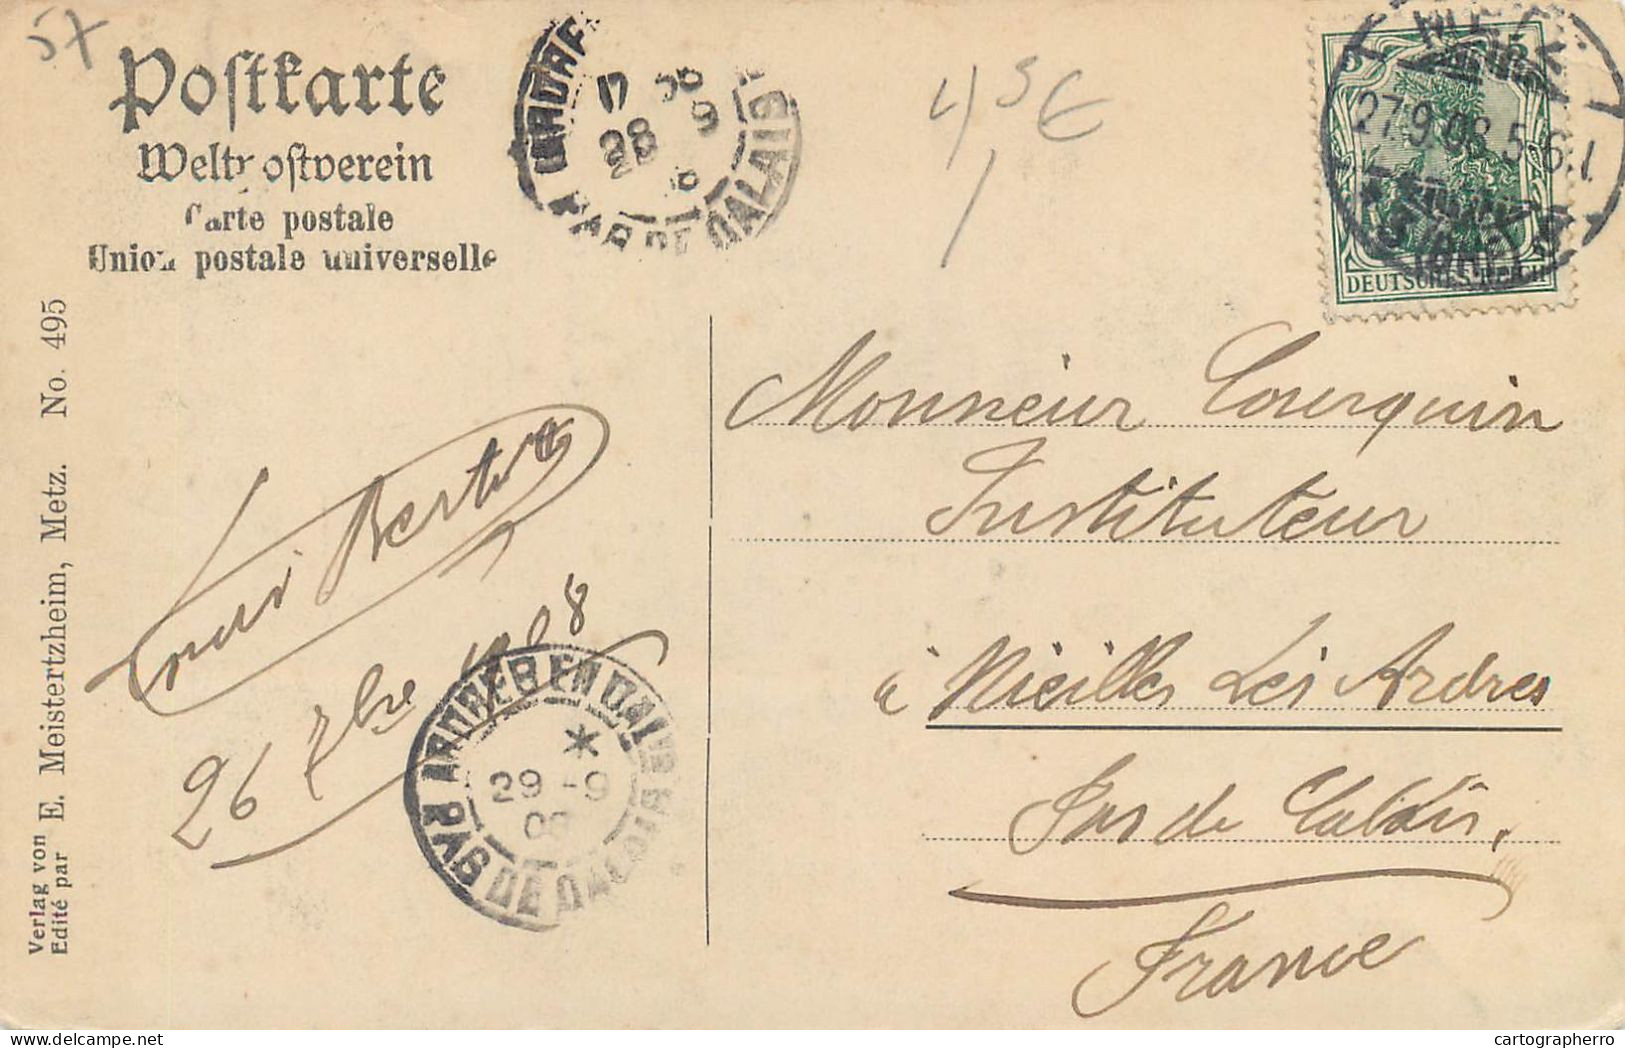 5x
Postkarte
Weltpostverein
Carte postale
Union postale universelle
4,5€
5
DEUTSCHES REICH
27.9.08.5-6.
28 9
PAS DE CALAIS
Monsieur Courquin
Instituteur
à Nielles Les Ardres
Pas de Calais.
France
Bertin
26 7bre 1908
29 -9
08
PAS DE CALAIS
Verlag von
Edité par E. Meistertzheim, Metz. No. 495
cartographerro